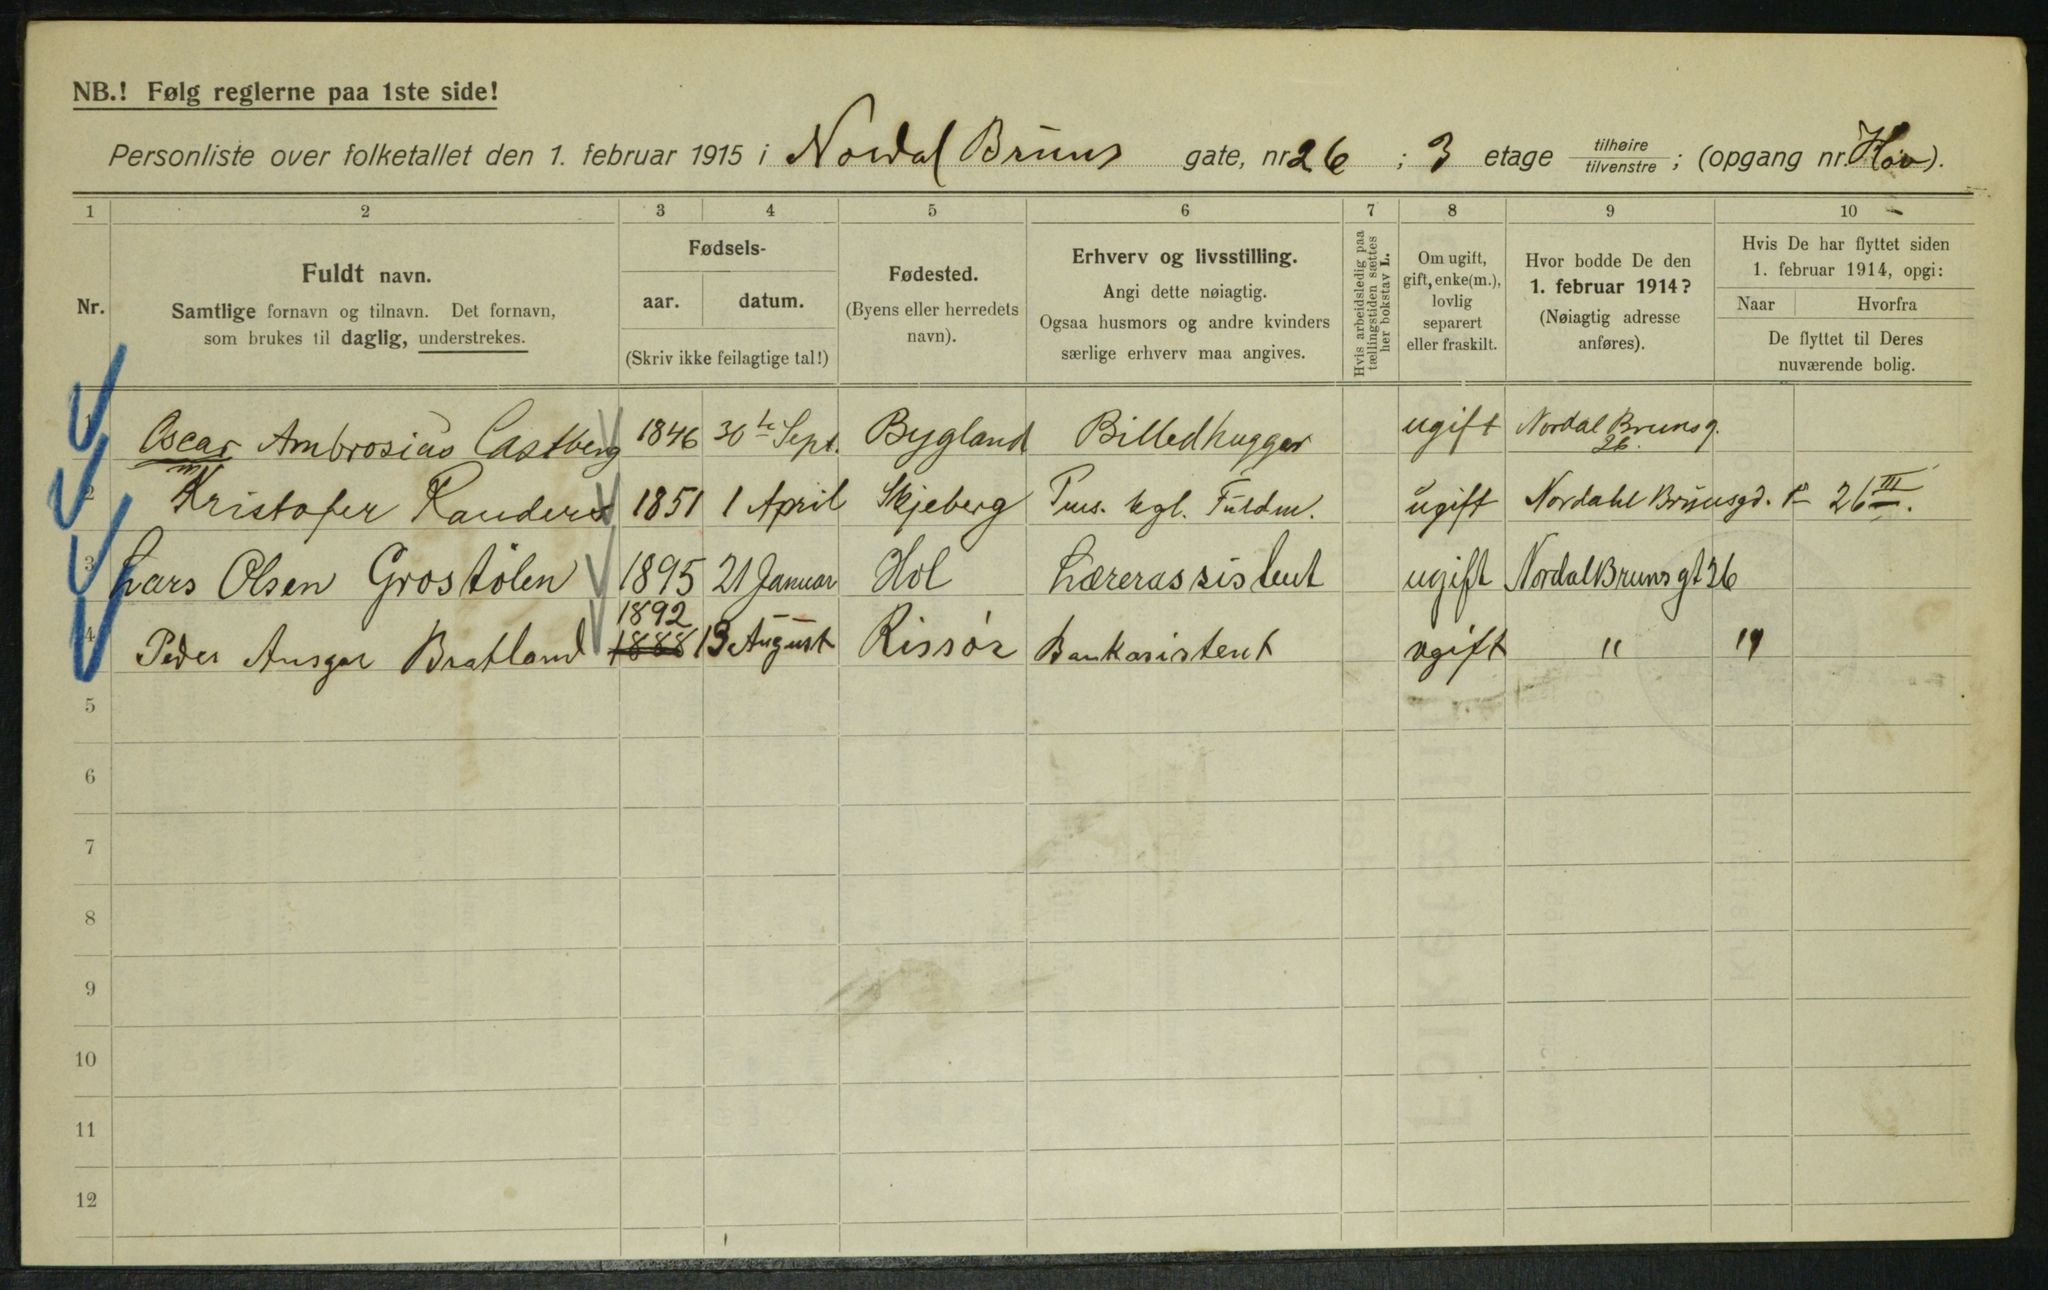 NB.! Følg reglerne paa 1ste side!
Personliste over folketallet den 1. februar 1915 i Nordal Bruns gate, nr. 26 ; 3 etage tilhøire / tilvenstre ; (opgang nr. Hov).
1 2 3 4 5 6 7 8 9 10
Nr.
Fuldt navn.
Samtlige fornavn og tilnavn. Det fornavn,
som brukes til daglig, understrekes.
Fødsels-
aar. datum.
(Skriv ikke feilagtige tal!)
Fødested.
(Byens eller herredets
navn).
Erhverv og livsstilling.
Angi dette nøiagtig.
Ogsaa husmors og andre kvinders
særlige erhverv maa angives.
Hvis arbeidsledig paa
tællingstiden sættes
her bokstav L.
Om ugift,
gift, enke(m.),
lovlig
separert
eller fraskilt.
Hvor bodde De den
1. februar 1914?
(Nøiagtig adresse
anføres).
Hvis De har flyttet siden
1. februar 1914, opgi:
Naar Hvorfra
De flyttet til Deres
nuværende bolig.
1 Oscar Ambrosius Castberg 1846 30te Sept. Bygland Billedhugger ugift Nordal Brunsg.
26.
2 Kristofer Randers 1851 1 April Skjeberg Pens. kgl. Fuldm. ugift Nordahl Brunsgd. 26 III.
3 Lars Olsen Grostölen 1895 21 Januar Hol Lærerassistent ugift Nordal Bruns gt 26
1892
4 Peder Ansgar Bratland 1888 13 August Rissör Bankasistent ugift " "
5
6
7
8
9
10
11
12